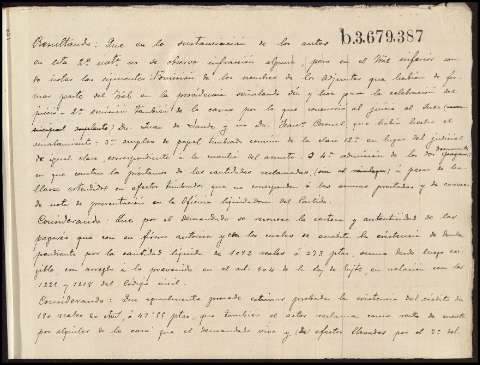 b.3.679.387
Resultando: Que en la sustanciación de los autos
en esta 2ª inst.ª se observa infracción alguna; pero en el Trial inferior son
de notar las siguientes: Omisión de los nombres de los adjuntos que habían de for
mar parte del Trial en la providencia señalando día y hora para la celebración del
juicio = 2ª omisión también de la causa por la que renunció al juicio el Juez
suplente) Dn. Juan de y no Dn. Franco. que había hecho el
emplazamiento: 3ª empleo de papel timbrado común de la clase 12ª en lugar del judicial
de igual clase, correspondiente a la cuantía del asunto. Y 4ª admisión de los dos pagarés,
en que constan los préstamos de las cantidades reclamadas, a pesar de ha
llarse extendidos en efectos timbrados que no corresponden á las sumas prestadas y de carecer
de nota de presentación en la Oficina liquidadora del Partido.
Considerando: Que por el demandado se reconoce la certeza y autenticidad de los
pagarés que con su firma autoriza y con los cuales se acredita la existencia de deuda
pendiente por la cantidad líquida de 1092 reales ó 273 ptas, suma desde luego exi
gible, con arreglo a lo prevenido en el art. 504 de la ley de Rito, en relación con los
1221 y 1218 del Código civil.
Considerando: Que igualmente procede estimar probada la existencia del crédito de
190 reales ó 47'55 ptas, que también el actor reclama como resto de cuenta
por alquiler de la casa que el demandado vive y efectos llevados por el 2º del